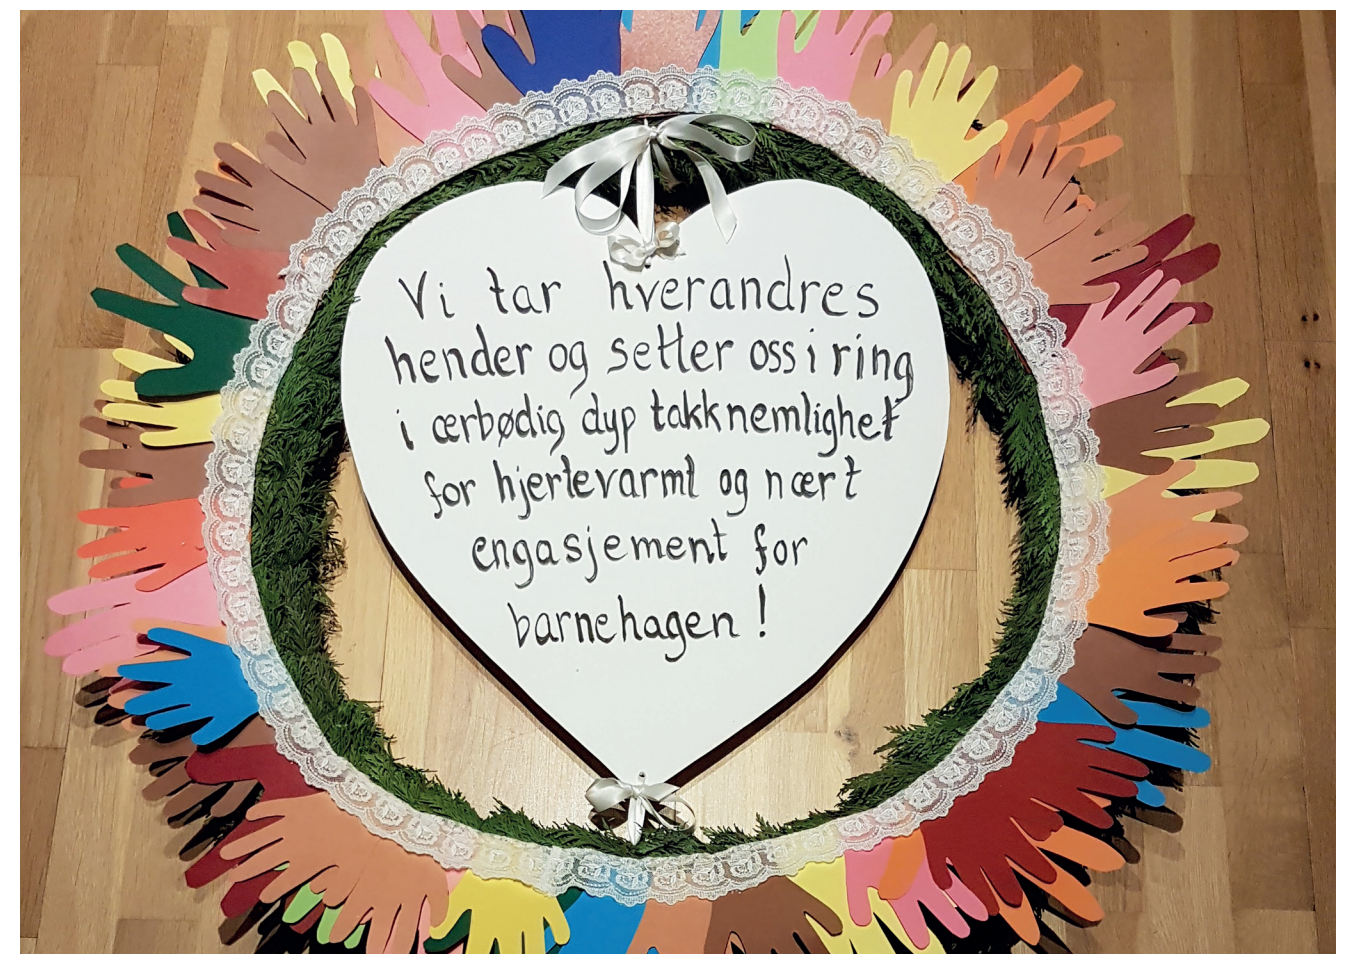 Vi tar hverandres
hender og setter oss i ring
i ærbødig dyp takknemlighet
for hjertevarmt og nært
engasjement for
barnehagen!